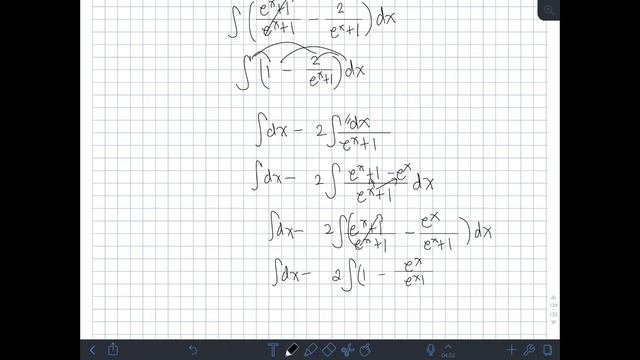 ∫(e^x+1/e^x+1 − 2/e^x+1)dx
∫(1 − 2/e^x+1)dx
∫dx − 2∫ 1·dx/e^x+1
∫dx − 2∫ e^x+1−e^x/e^x+1 dx
∫dx − 2∫(e^x+1/e^x+1 − e^x/e^x+1)dx
∫dx − 2∫(1 − e^x/e^x1
134
135
T
04:02